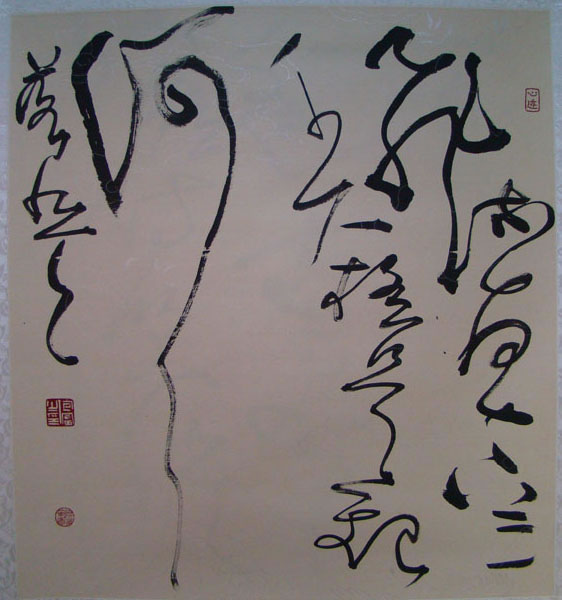 飛流直下三
千尺疑是銀
河
落九天